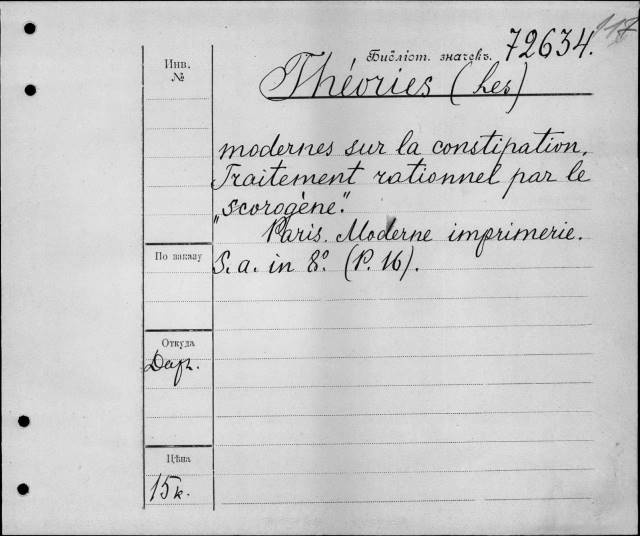 117
Библіот. значекъ. 72634.
Инв.
№
Théories (Les)
modernes sur la constipation.
Traitement rationnel par le
„scorogène“.
Paris. Moderne imprimerie.
По заказу
S. a. in 8º. (P. 16).
Откуда
Дар.
Цѣна
15 к.